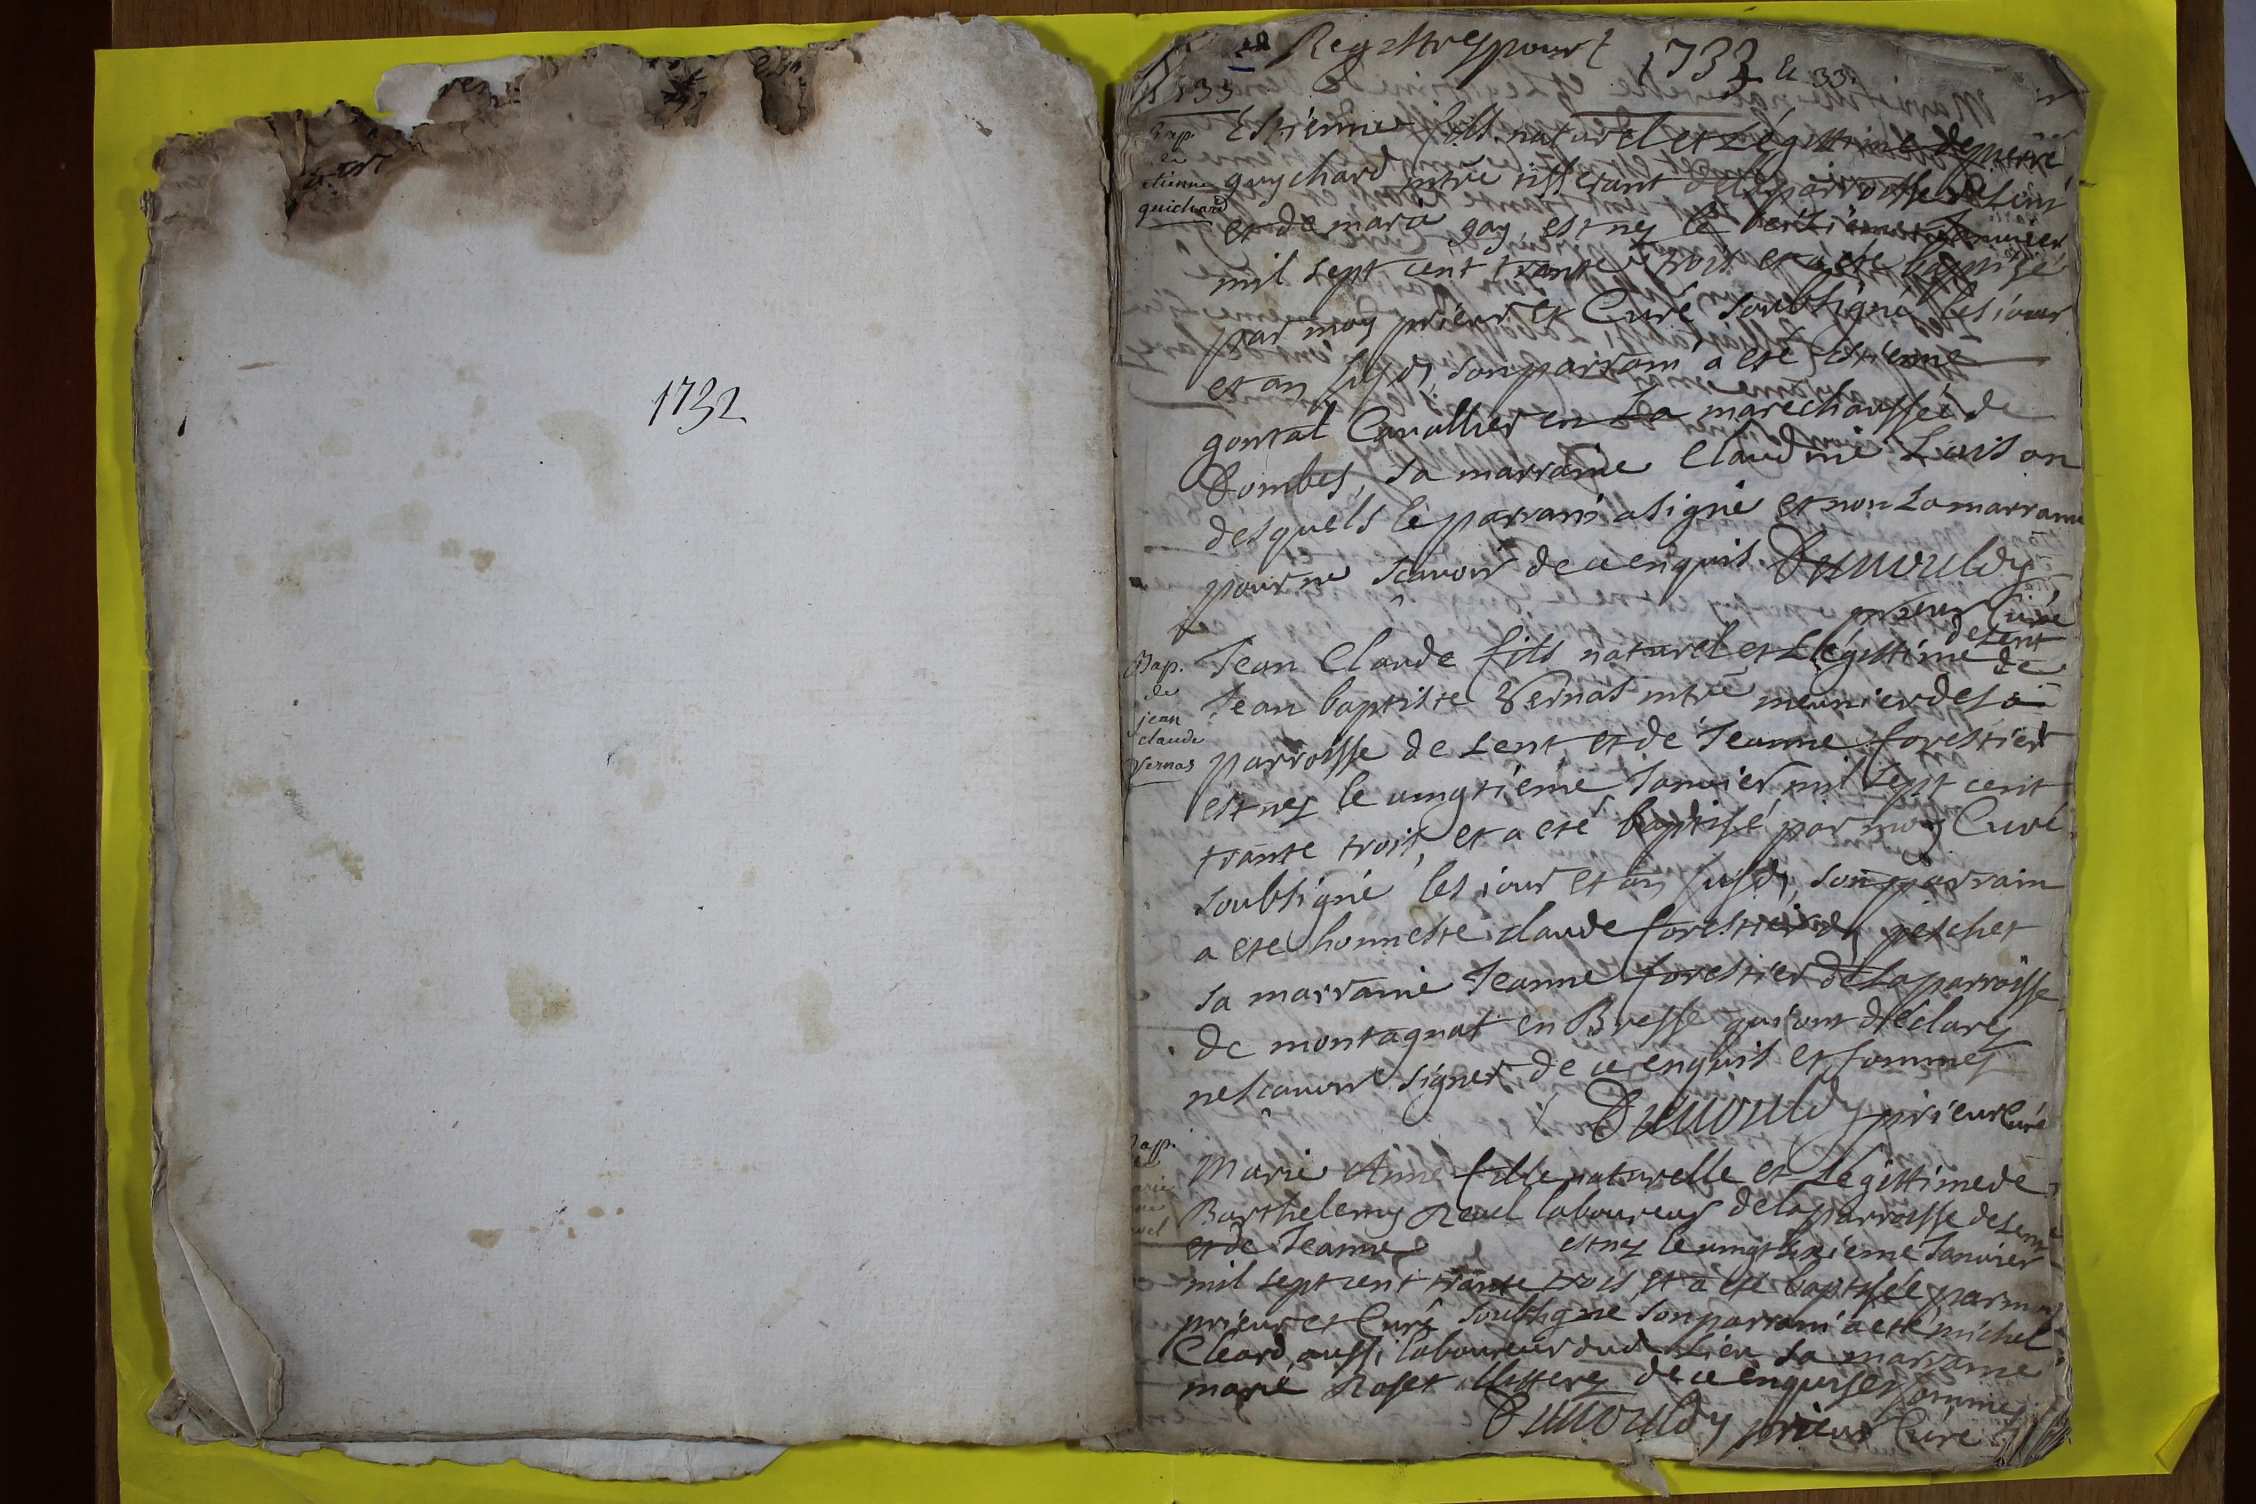 1732
Registres pour 1733 & 33.
1733
Bap.
de
etienne
guichard
Estienne fils naturel et Légittime de pierre
guychard mtre tisserant de la parroisse de Lent
et de maria gay, est nez le Janvier
mil sept cent trante trois et a eté baptizé
par moy prieur et Curé soubsigné les iour
et an susd, son parrain a eté Estienne
gontal Cavallier en La marechaussée de
Dombes, sa marraine Claudine Luison
desquels le parrain a signé et non La marraine
pour ne scavoir de ce enquis. Dumouldy
prieur Curé
de Lent
Bap.
de
jean
claude
Vernas
Jean Claude fils naturel et Légittime de
Jean baptiste Vernas mtre meunier de la
parroisse de Lent et de Jeanne forestier
est nez le vingtiéme Janvier mil sept cent
trante trois, et a eté baptisé par moy Curé
soubsigné les iour et an susd, son parrain
a eté honneste claude forestier de peschet
sa marraine Jeanne forestier de La parroisse
de montagnat en Bresse qui ont déclaré
ne scavoir signer de ce enquis et sommes
Dumouldy prieur Curé
Bap.
Marie Anne fille naturelle et Légittime de
Barthelemy Revel laboureur de la parroisse de Lent
et de Jeanne est nez le vingt sixiéme Janvier
mil sept cent trante trois et a eté baptisée par moy
prieur et Curé soubsigné son parrain a eté michel
Cleard, aussi laboureur dud Lieu sa marraine
marie Roset illitterez de ce enquis et sommes
Dumouldy prieur Curé